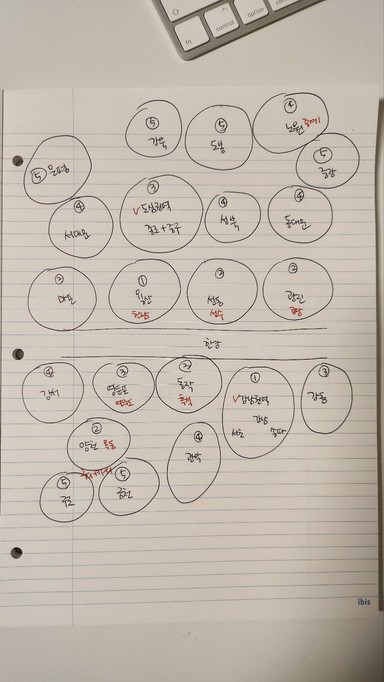 fn
control
option
⑤
강북
⑤
도봉
④
노원 중계
⑤ 은평
⑤
중랑
④
서대문
③
√ 도심권역
종로 + 중구
④
성북
④
동대문
②
마포
①
용산
한남
②
성동
성수
②
광진
광장
한강
④
강서
③
영등포
여의도
②
동작
흑석
①
√ 강남권역
강남
서초 송파
③
강동
②
양천 목동
④
관악
⑤
구로
⑤
금천
ibis